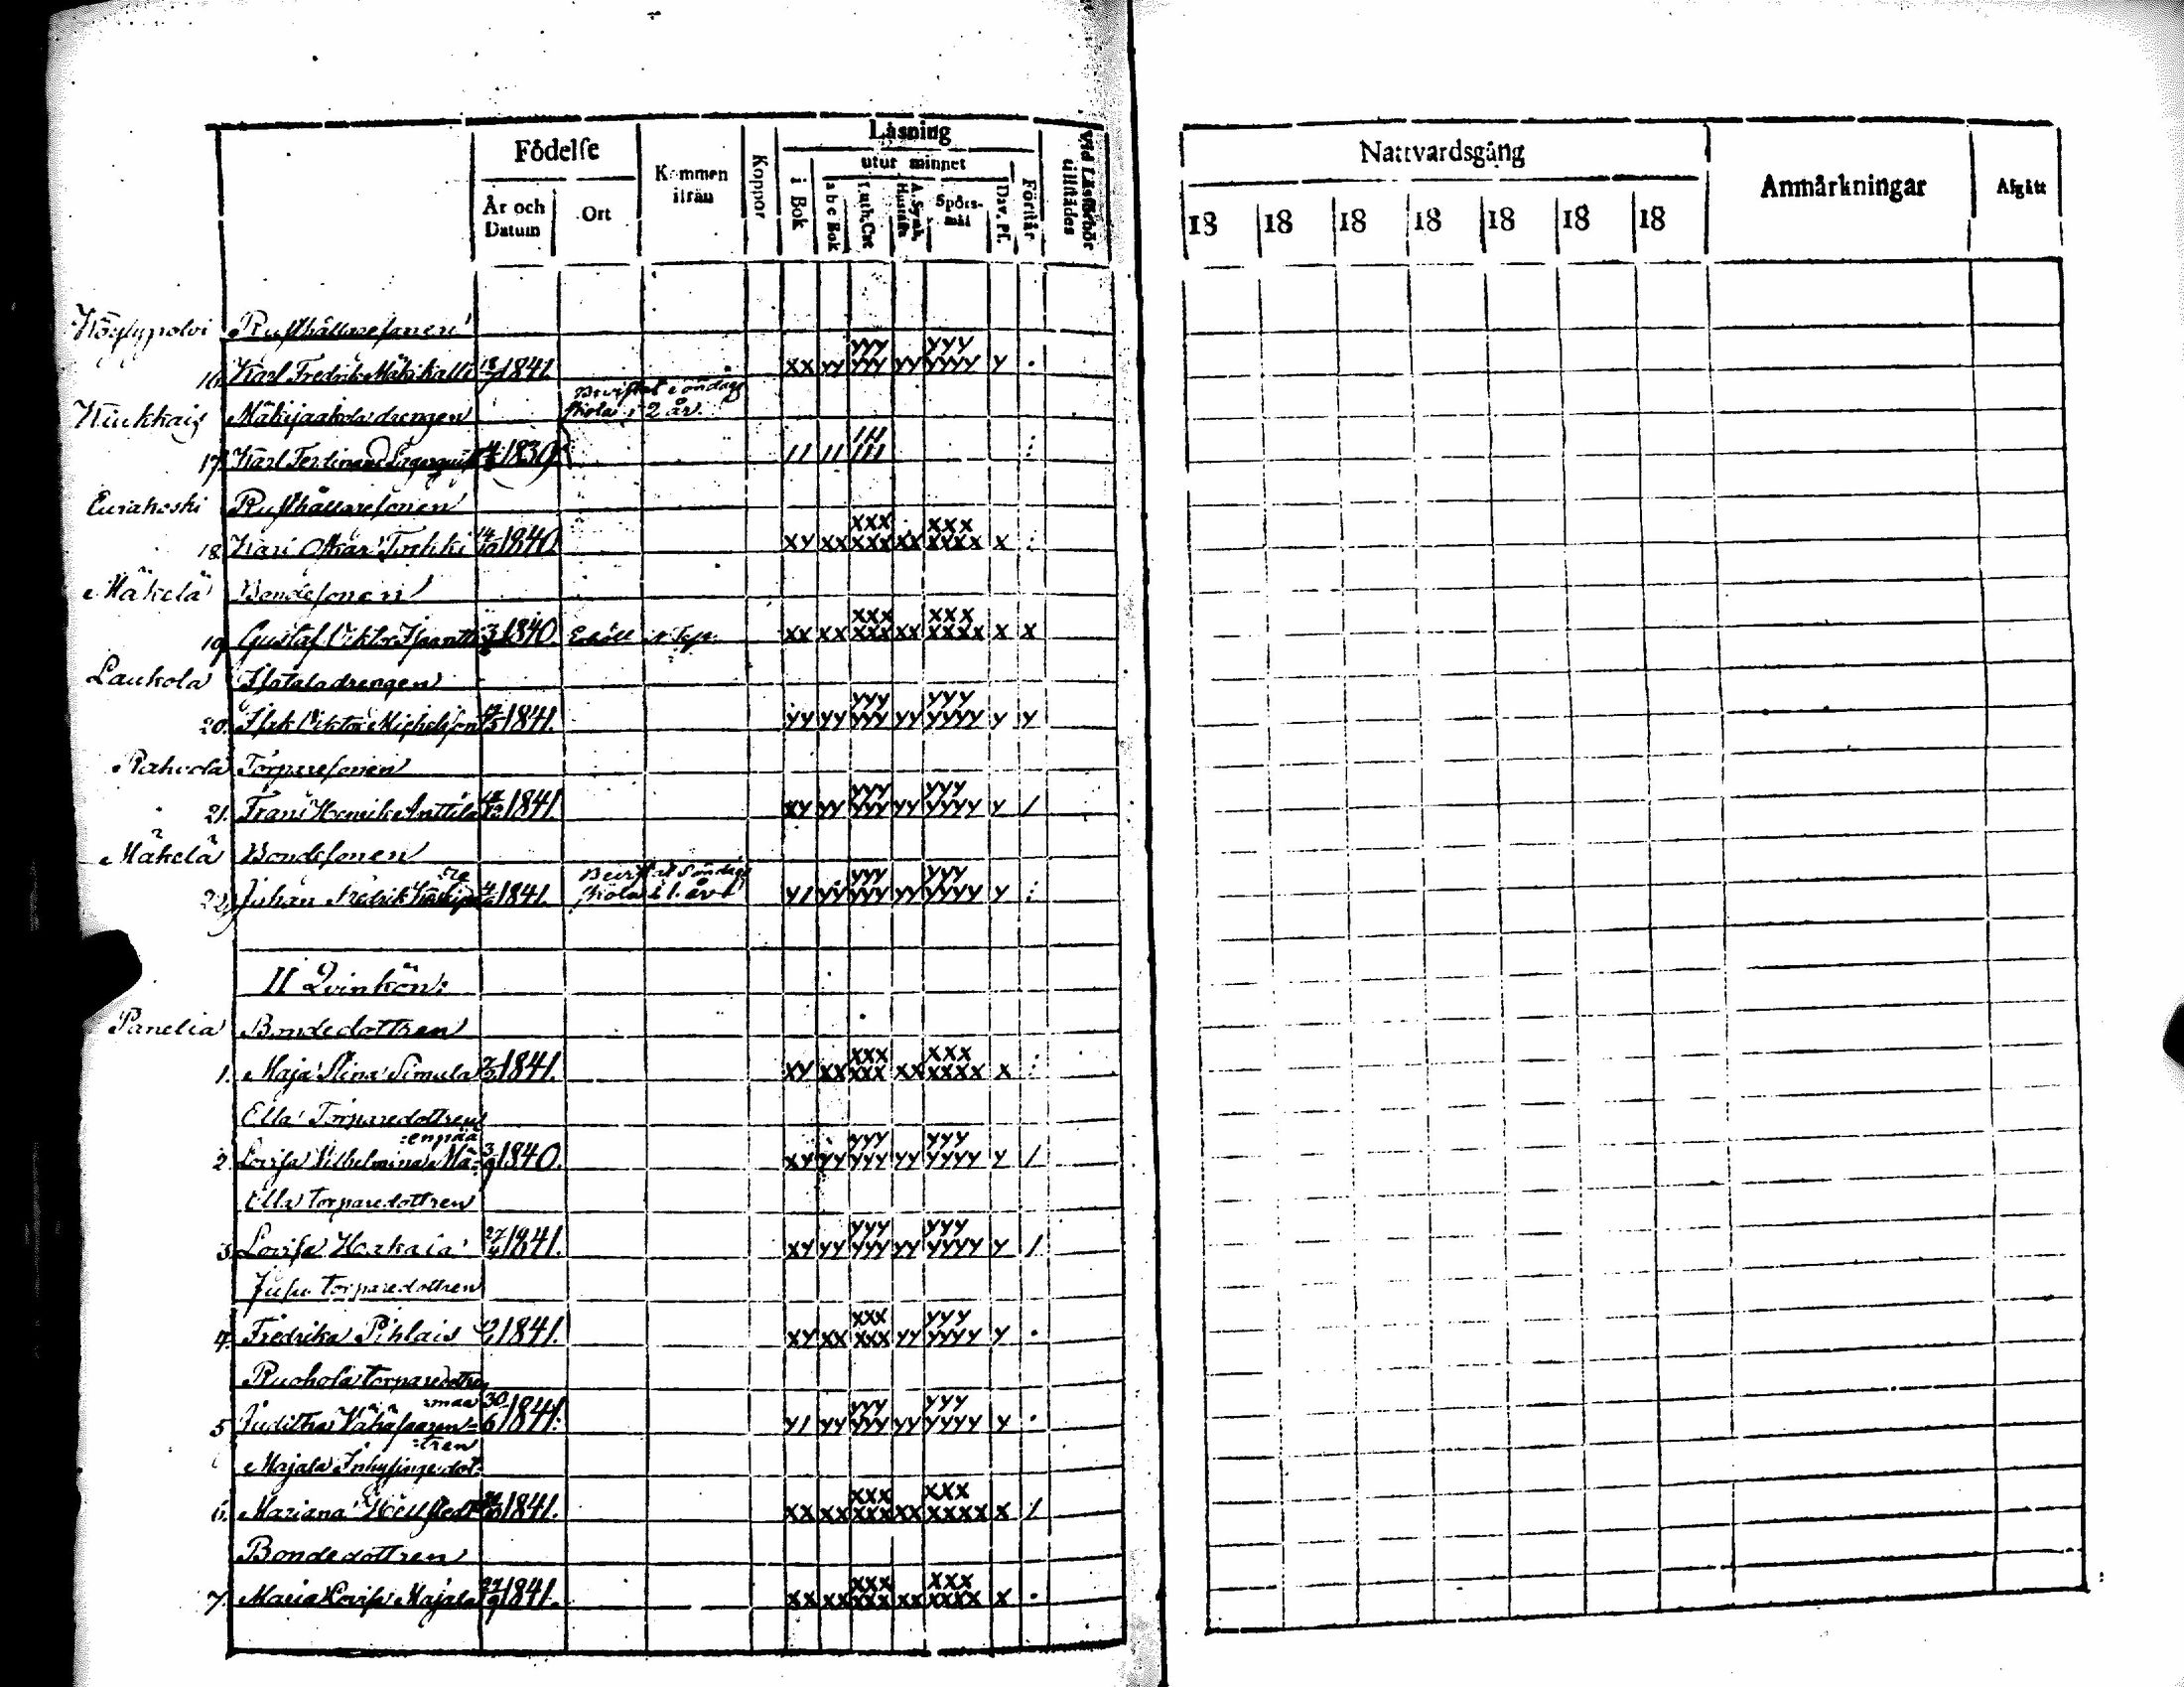 Födelse
Kommen
ifrån
Koppor
Läsning
utur minnet
i Bok
a b c Bok
Luth. Cat
A. Symb.
Hustafla
Spörs-
mål
Dav. Ps.
Förstår
Vid Läsförhör
tillstädes
År och
Datum
Ort
Nattvardsgång
Anmärkningar
Afgått
18 18 18 18 18 18 18
Rusthållaresonen
16. Karl Fredrik Mäkikalli 1841. xx yy yyy yyy yy yyy yyyy y .
Bevistat söndags
skola i 2 år.
Mäkijaakola drengen
17. Karl Ferdinand 1839. // // /// ///
Eurakoski Rusthållaresonen
18. Karl Oskar 14/10 1840. xy xx xxx xxx xx xxx xxxx x
Mäkelä Bondesonen
19. Gustaf Viktor 1840. xx xx xxx xxx xx xxx xxxx x x
Laukola drengen
20. Isak Viktor Michelsson 1841. yy yy yyy yyy yy yyy yyyy y y
Torparesonen
21. Frans Henrik Anttila 1841. xy yy yyy yyy yy yyy yyyy y /
Mäkelä Bondesonen
Bevistat Söndags
skola i 1. år
22. Johan Fredrik 1841. y/ yy yyy yyy yy yyy yyyy y
II Qvinkön:
Panelia Bondedottren
1. Maja Stina Simula 1841. xy xx xxx xxx xx xxx xxxx x
Ella Torparedottren
:enpää
2. Lovisa Wilhelmina Mä- 3/9 1840. xy yy yyy yyy yy yyy yyyy y /
Ella torparedottren
3. Lovisa 27/4 1841. xy yy yyy yyy yy yyy yyyy y /
Juju torparedottren
4. Fredrika Pihlais 1841. xy xx xxx xxx yy yyy yyyy y .
Ruohola torparedottren
:maa
5. Juditha Vähäsaaren- 30/6 1841. y/ yy yyy yyy yy yyy yyyy y .
:tren
Majala Inhysingedot:
6. Mariana 1841. xx xx xxx xxx xx xxx xxxx x /
Bondedottren
7. Maria Lovisa Majala 27/9 1841. xx xx xxx xxx xx xxx xxxx x .